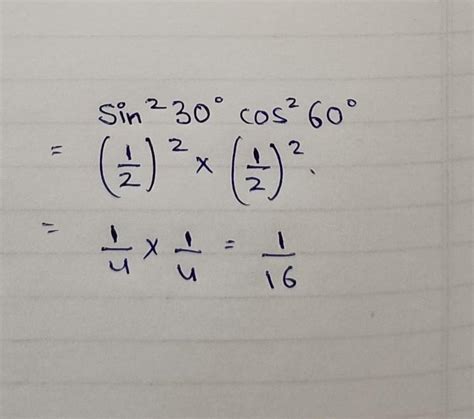 sin²30° cos²60°
= (1/2)² × (1/2)².
= 1/4 × 1/4 = 1/16